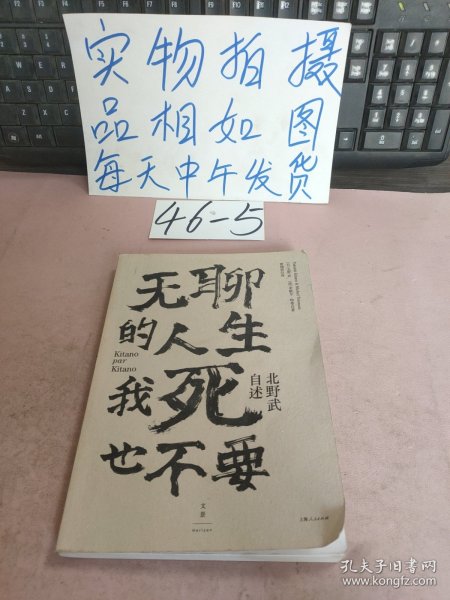 实物拍摄
品相如图
每天中午发货
46-5
无聊
的人生
我死
也不要
Kitano
par
Kitano
北野武
自述
文景
Horizon
上海人民出版社
孔夫子旧书网
www.kongfz.com